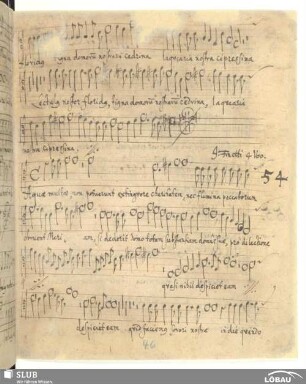 florida, tigna domorũ nostrarũ cedrina laquearia nostra cipressina
lectulus noster florida, tigna domorũ nostrarũ cedrina, laquearia
nostra cipressina
4 Voc.
54
Aquæ multæ non potuerunt extinguere charitatem, nec flumina
si dederit homo totam substantiam domus suæ, pro dilectione
quasi nihil despiciet eam
despiciet eam quid faciemus sorori nostræ in die quando
46
SLUB
Wir führen Wissen.
LÖBAU